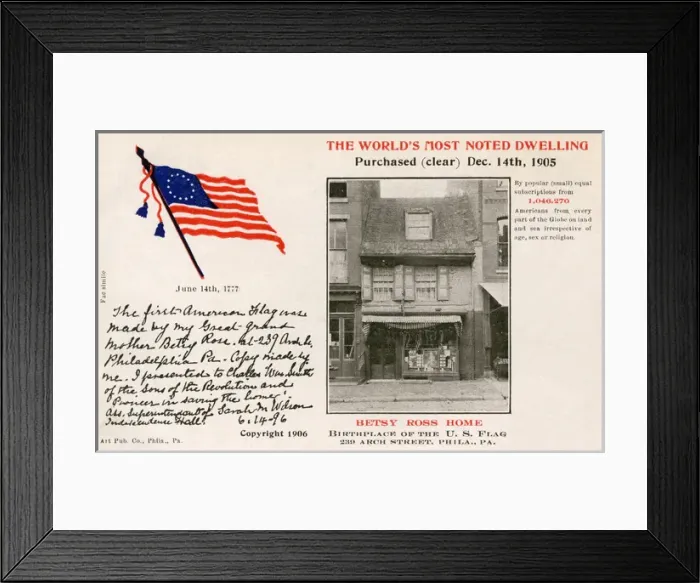 THE WORLD'S MOST NOTED DWELLING
Purchased (clear) Dec. 14th, 1905
By popular (small) equal
subscriptions from
1,040,270
Americans from every
part of the Globe on land
and sea irrespective of
age, sex or religion.
June 14th, 1777
Fac simile
The first American Flag was
made by my Great grand
Mother Betsy Ross. at 239 Arch St.
Philadelphia Pa. Copy made by
me. I presented to Charles Wm. Smith
of the Sons of the Revolution and
Pioneer in saving the home.
Ass. Superintendent of Sarah M Wilson
Independence Hall. 6.14-96
Copyright 1906
Art Pub. Co., Phila., Pa.
BETSY ROSS HOME
BIRTHPLACE OF THE U. S. FLAG
239 ARCH STREET. PHILA., PA.